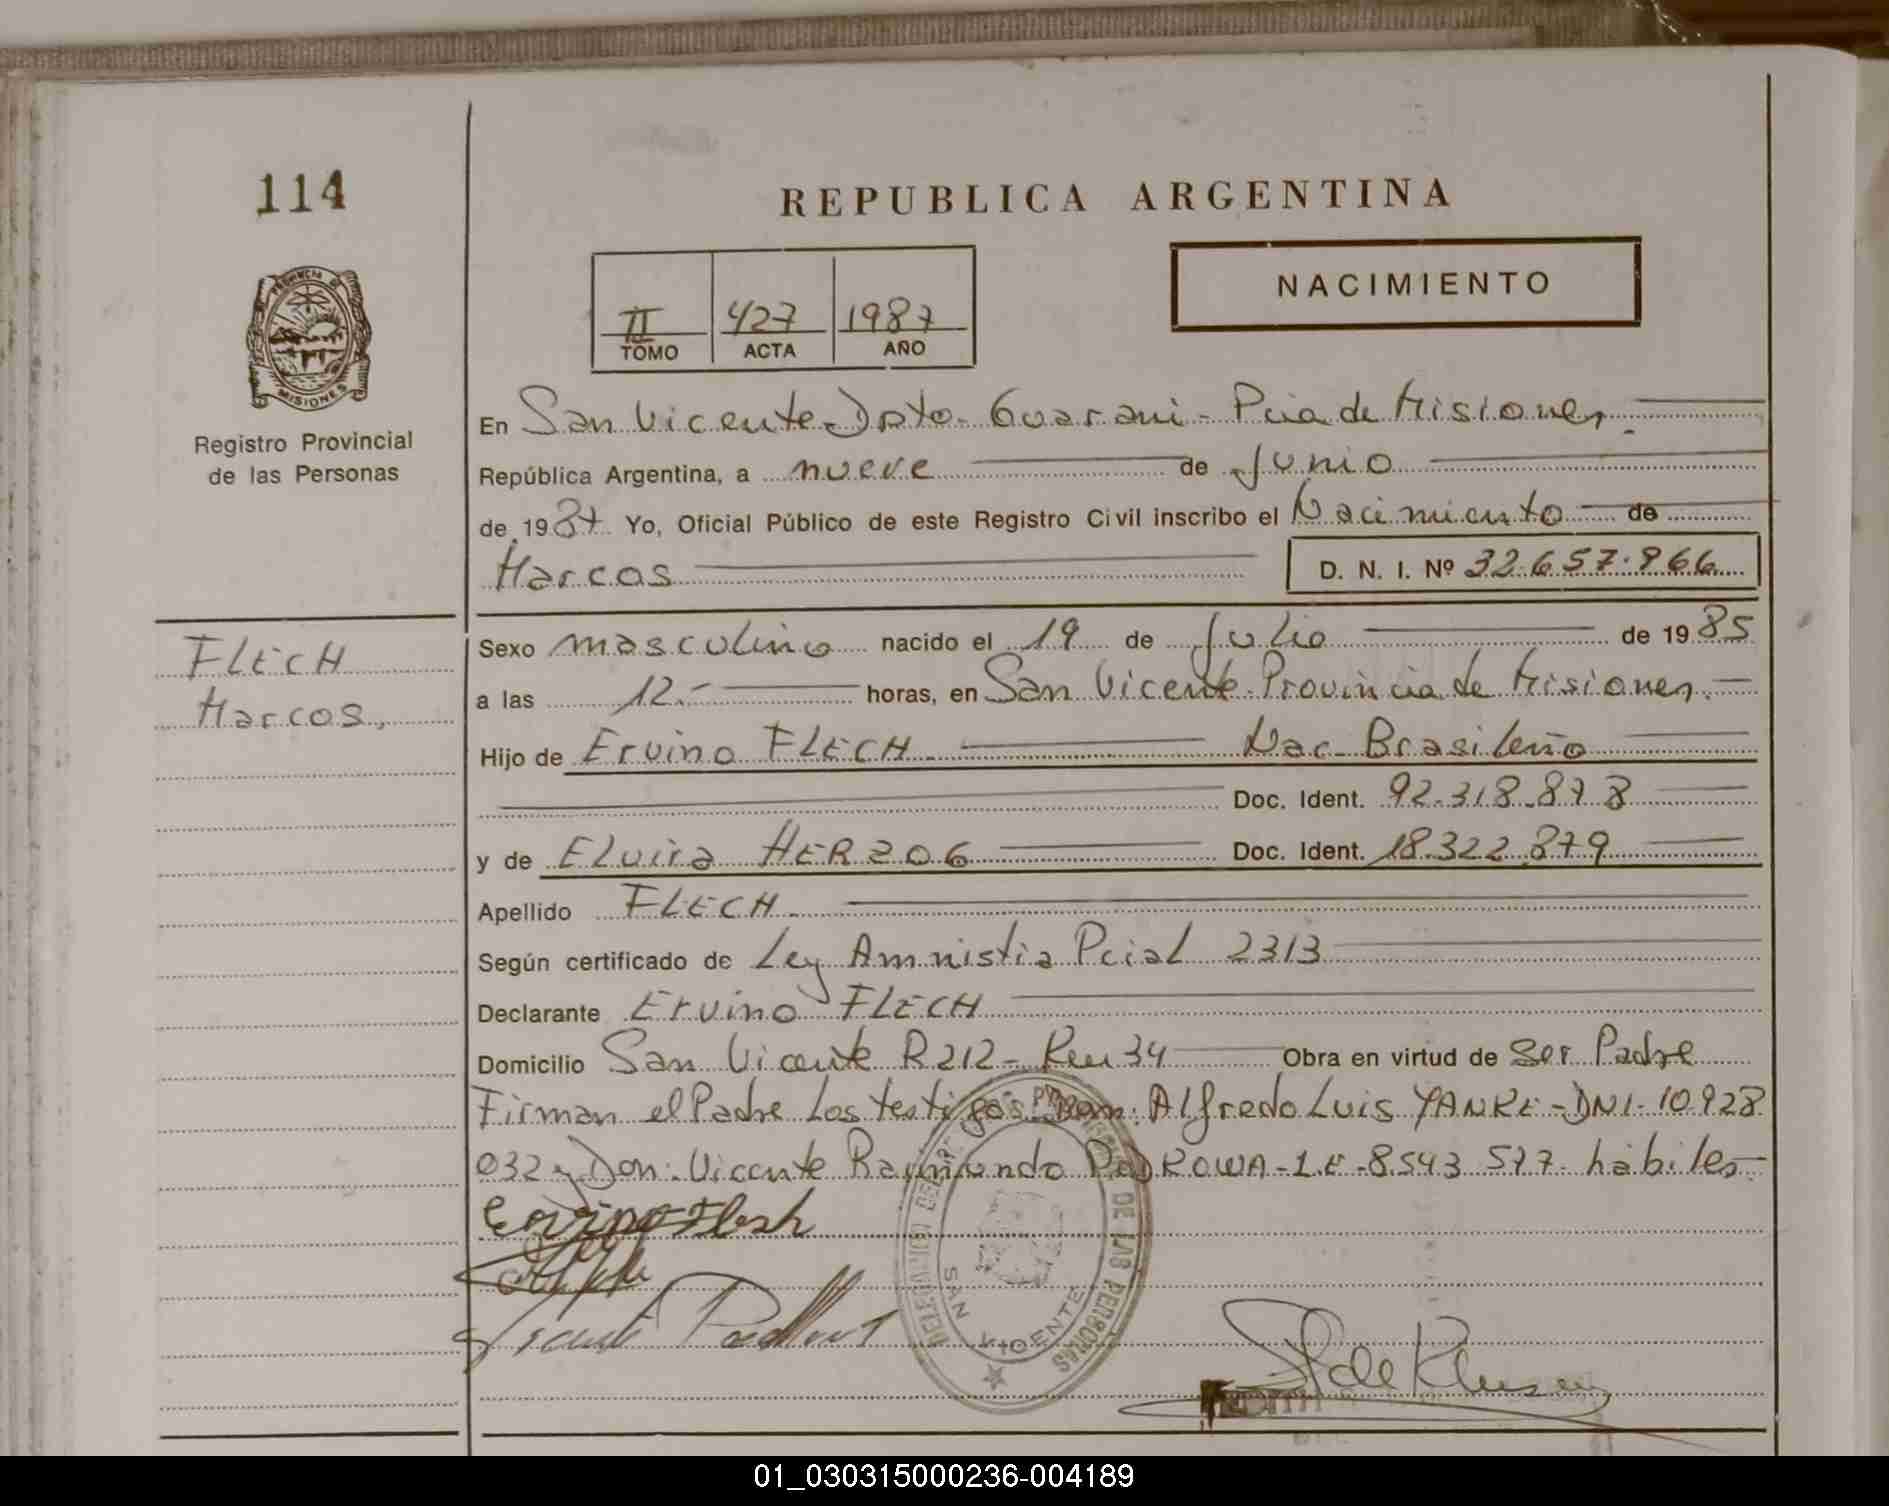 114
REPUBLICA ARGENTINA
PROVINCIA DE
MISIONES
Registro Provincial
de las Personas
II 427 1987
TOMO ACTA AÑO
NACIMIENTO
En San Vicente Dpto. Guarani - Pcia de Misiones
República Argentina, a nueve de Junio
de 1987 Yo, Oficial Público de este Registro Civil inscribo el Nacimiento de
Marcos D. N. I. Nº 32.657.966
FLECH
Marcos
Sexo masculino nacido el 19 de Julio de 1985
a las 12.- horas, en San Vicente Provincia de Misiones.
Hijo de Ervino FLECH Nac. Brasileño
Doc. Ident. 92.318.878
y de Elvira HERZOG Doc. Ident. 18.322.879
Apellido FLECH
Según certificado de Ley Amnistia Pcial 2313
Declarante Ervino FLECH
Domicilio San Vicente R 212 - Km 34 Obra en virtud de Ser Padre
Firman el Padre Los testigos Don. Alfredo Luis YANKE - DNI. 10.928
032 y Don. Vicente Raimundo - L.E - 8.543.577. habiles
Ervino Flesh
DE LAS PERSONAS
SAN VICENTE
01_030315000236-004189